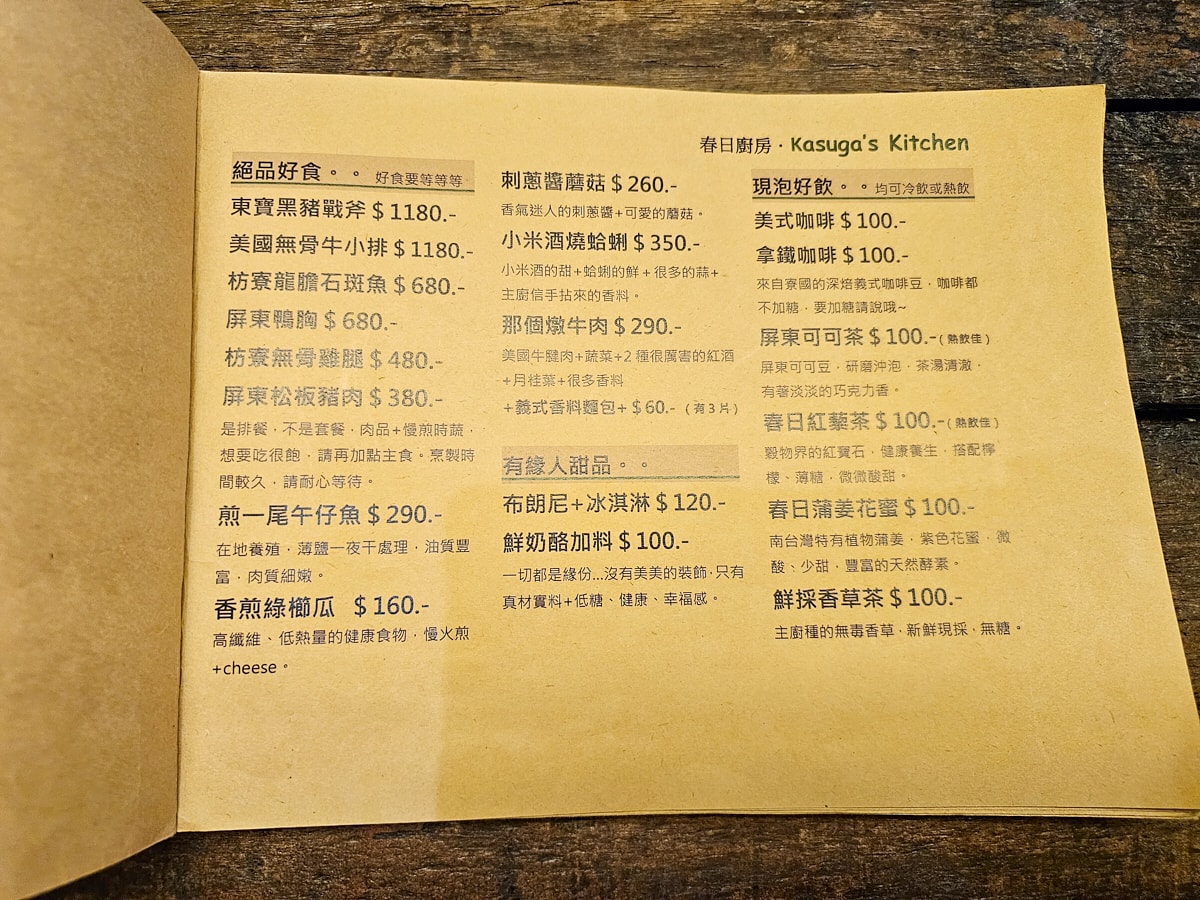 春日廚房·Kasuga's Kitchen
絕品好食。。 好食要等等等
東寶黑豬戰斧 $ 1180.-
美國無骨牛小排 $ 1180.-
枋寮龍膽石斑魚 $ 680.-
屏東鴨胸 $ 680.-
枋寮無骨雞腿 $ 480.-
屏東松板豬肉 $ 380.-
是排餐·不是套餐·肉品+慢煎時蔬·
想要吃很飽，請再加點主食。烹製時
間較久，請耐心等待。
煎一尾午仔魚 $ 290.-
在地養殖·薄鹽一夜干處理，油質豐
富，肉質細嫩。
香煎綠櫛瓜 $ 160.-
高纖維、低熱量的健康食物，慢火煎
+cheese。
刺蔥醬蘑菇 $ 260.-
香氣迷人的刺蔥醬+可愛的蘑菇。
小米酒燒蛤蜊 $ 350.-
小米酒的甜+蛤蜊的鮮+很多的蒜+
主廚信手拈來的香料。
那個燉牛肉 $ 290.-
美國牛腱肉+蔬菜+2 種很厲害的紅酒
+月桂葉+很多香料
+義式香料麵包+ $ 60.- ( 有 3 片 )
有緣人甜品。。
布朗尼+冰淇淋 $ 120.-
鮮奶酪加料 $ 100.-
一切都是緣份...沒有美美的裝飾·只有
真材實料+低糖、健康、幸福感。
現泡好飲。。均可冷飲或熱飲
美式咖啡 $ 100.-
拿鐵咖啡 $ 100.-
來自寮國的深焙義式咖啡豆，咖啡都
不加糖，要加糖請說哦~
屏東可可茶 $ 100.-( 熱飲佳 )
屏東可可豆·研磨沖泡·茶湯清澈·
有著淡淡的巧克力香。
春日紅藜茶 $ 100.-( 熱飲佳 )
穀物界的紅寶石·健康養生·搭配檸
檬、薄糖，微微酸甜。
春日蒲姜花蜜 $ 100.-
南台灣特有植物蒲姜·紫色花蜜·微
酸、少甜，豐富的天然酵素。
鮮採香草茶 $ 100.-
主廚種的無毒香草·新鮮現採·無糖。